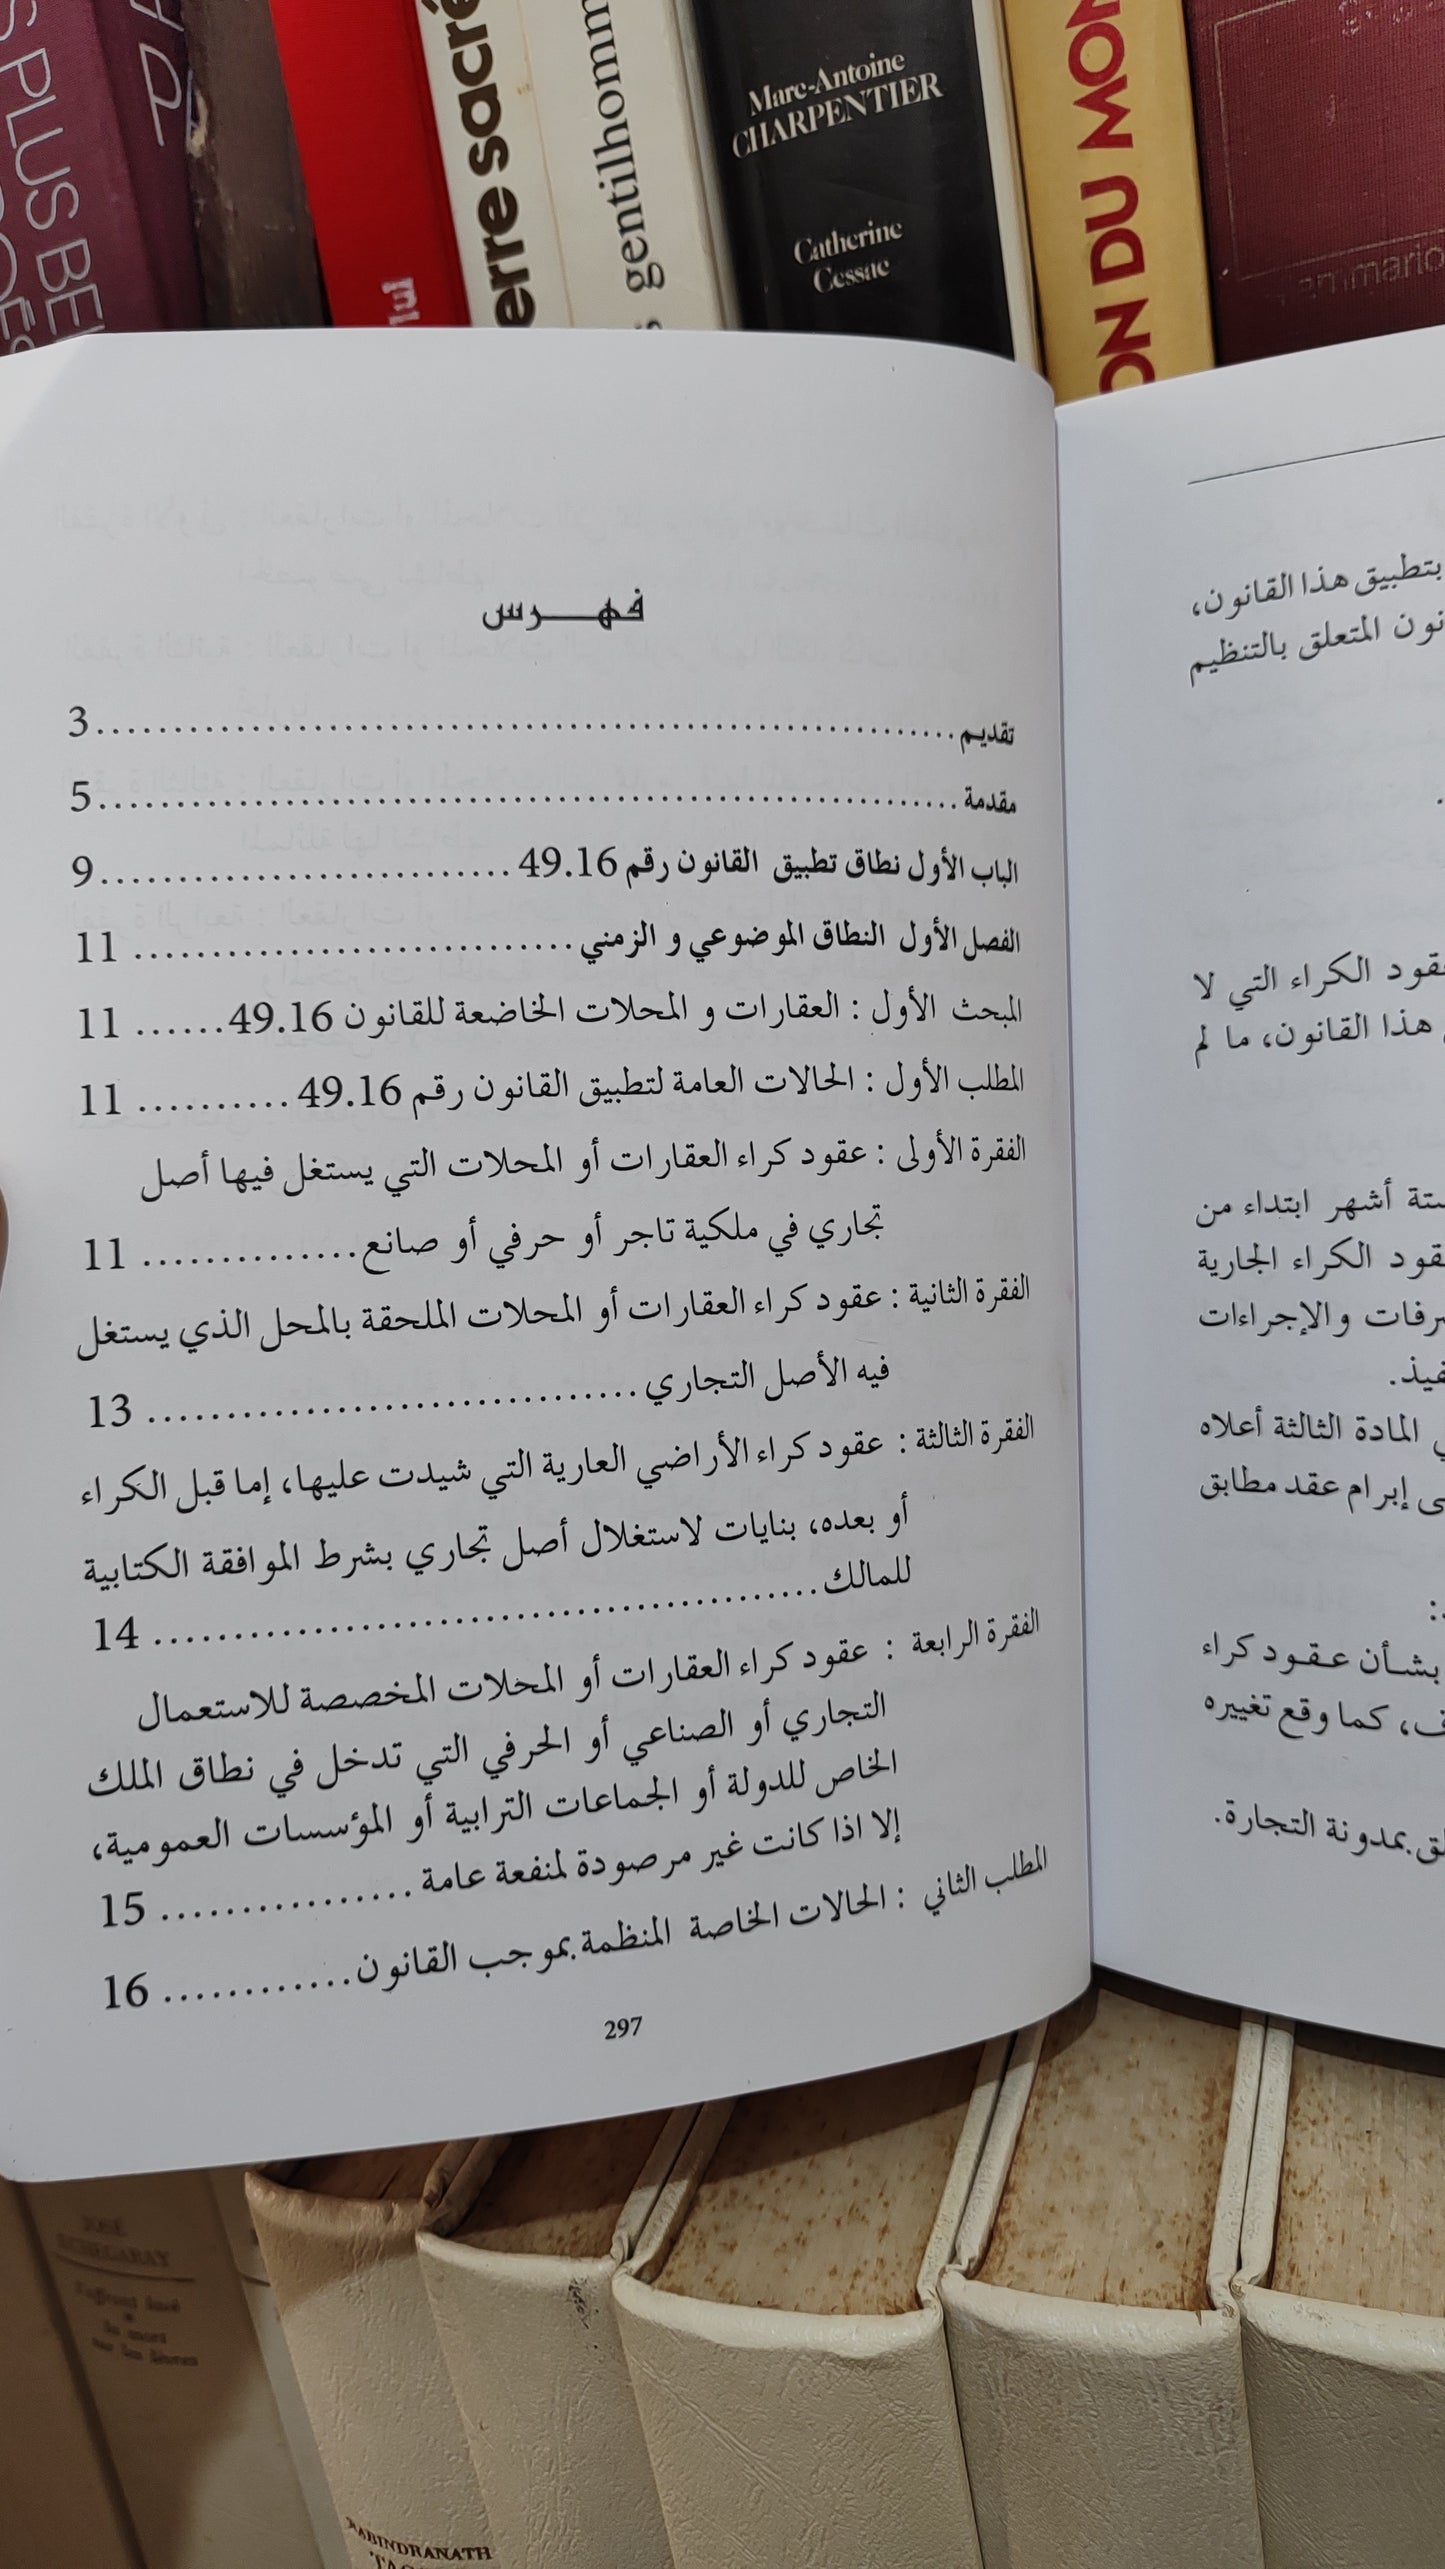 PLUS BE
sacré
gentilhomm
Marc-Antoine
CHARPENTIER
Catherine
Cessac
DU MON
فهـــرس
تقديم......................................................3
مقدمة......................................................5
الباب الأول نطاق تطبيق القانون رقم 49.16...........................9
الفصل الأول النطاق الموضوعي و الزمني............................ 11
المبحث الأول : العقارات و المحلات الخاضعة للقانون 49.16...... 11
المطلب الأول : الحالات العامة لتطبيق القانون رقم 49.16.......... 11
الفقرة الأولى : عقود كراء العقارات أو المحلات التي يستغل فيها أصل
تجاري في ملكية تاجر أو حرفي أو صانع.............. 11
الفقرة الثانية : عقود كراء العقارات أو المحلات الملحقة بالمحل الذي يستغل
فيه الأصل التجاري............................... 13
الفقرة الثالثة : عقود كراء الأراضي العارية التي شيدت عليها، إما قبل الكراء
أو بعده، بنايات لاستغلال أصل تجاري بشرط الموافقة الكتابية
للمالك.......................................... 14
الفقرة الرابعة : عقود كراء العقارات أو المحلات المخصصة للاستعمال
التجاري أو الصناعي أو الحرفي التي تدخل في نطاق الملك
الخاص للدولة أو الجماعات الترابية أو المؤسسات العمومية،
إلا اذا كانت غير مرصودة لمنفعة عامة................ 15
المطلب الثاني : الحالات الخاصة المنظمة بموجب القانون............ 16
297
بتطبيق هذا القانون،
المتعلق بالتنظيم
الكراء التي لا
هذا القانون، ما لم
أشهر ابتداء من
الكراء الجارية
والإجراءات
المادة الثالثة أعلاه
إبرام عقد مطابق
بشأن عقود كراء
كما وقع تغييره
بمدونة التجارة.
ECHEGARAY
RABINDRANATH